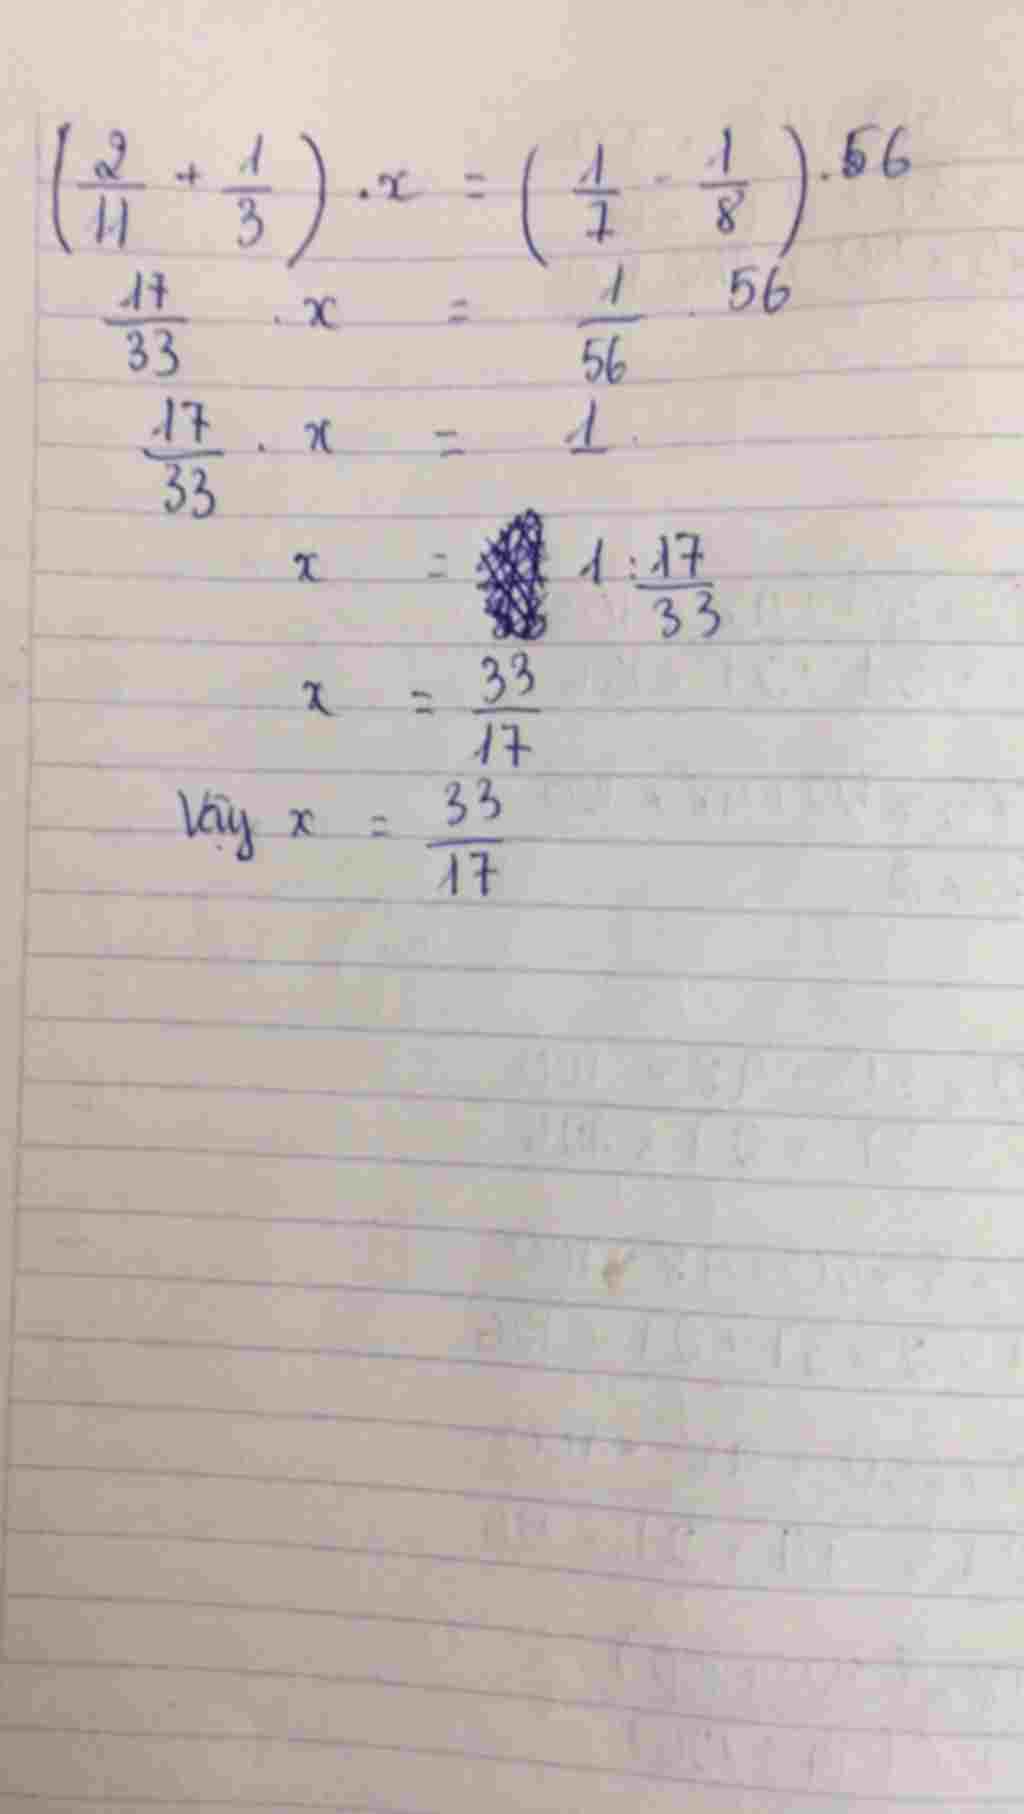 (2/11 + 1/3) . x = (1/7 - 1/8) . 56
17/33 . x = 1/56 . 56
17/33 . x = 1
x = 1 : 17/33
x = 33/17
Vậy x = 33/17